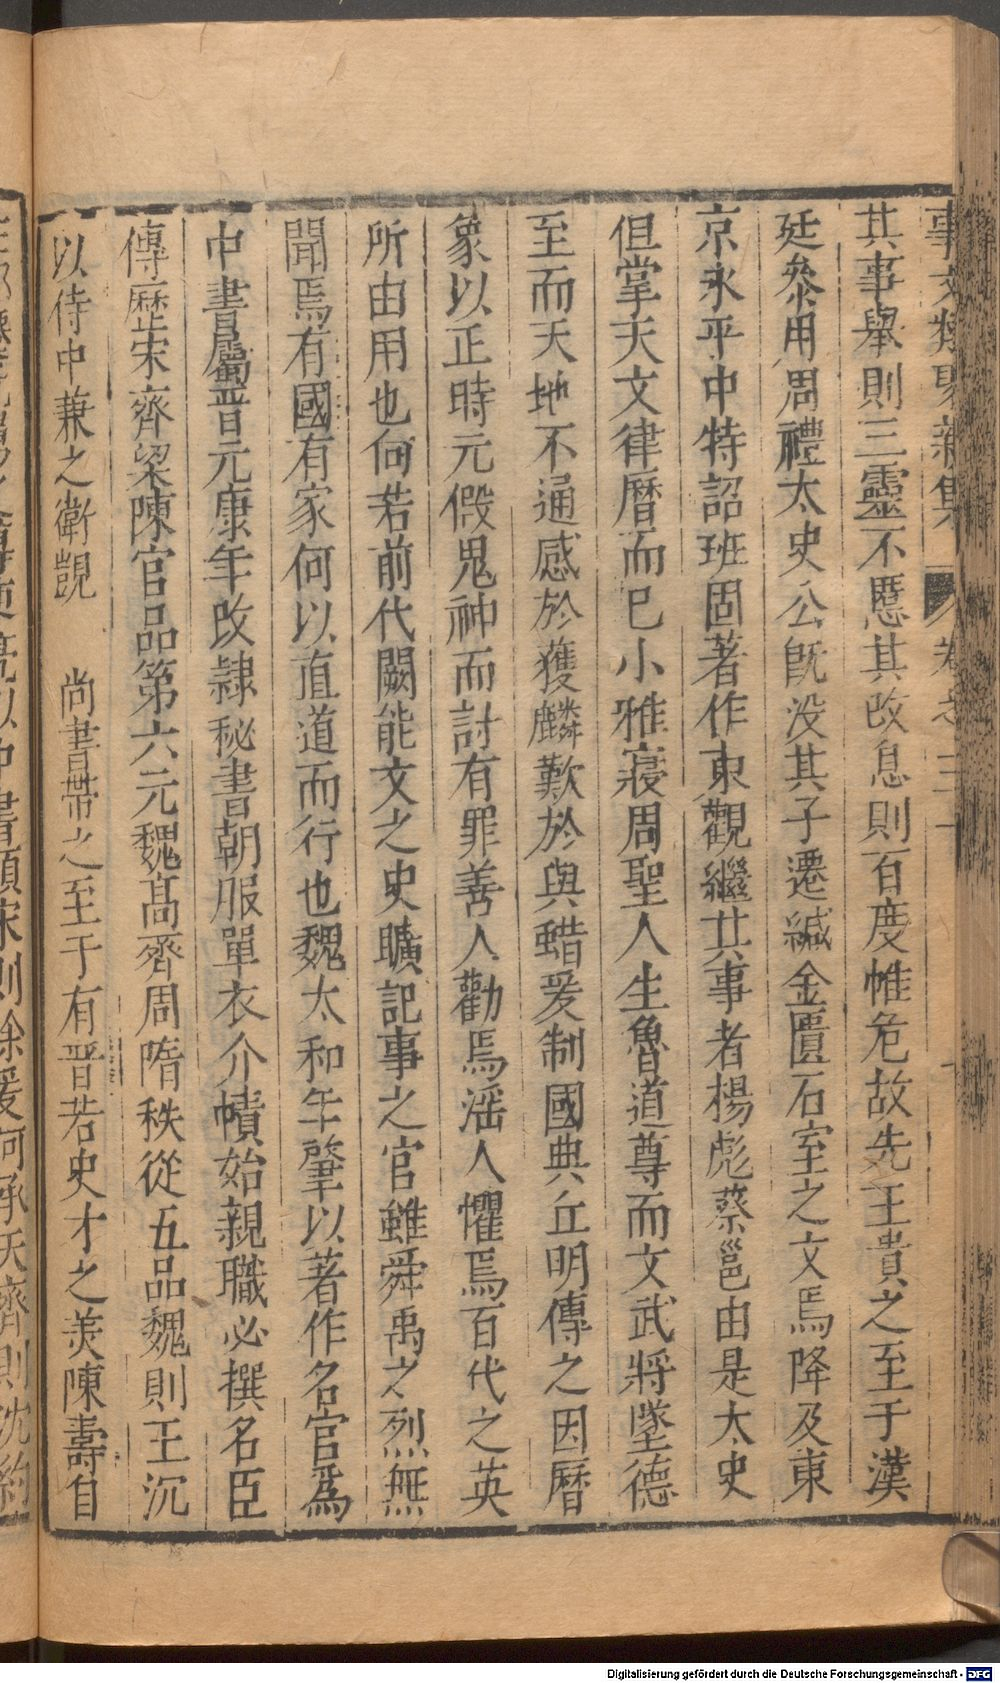 事文類聚新集 卷之三十
其事舉則三靈不慝其改息則百度惟危故先王貴之至于漢
廷參用周禮太史公既没其子遷緘金匱石室之文焉降及東
京永平中特詔班固著作東觀繼其事者楊彪蔡邕由是太史
但掌天文律曆而已小雅寢周聖人生魯道尊而文武將墜德
至而天地不通感於獲麟歎於與蜡爰制國典丘明傳之因曆
象以正時元假鬼神而討有罪善人勸焉滛人懼焉百代之英
所由用也何若前代闕能文之史曠記事之官雖舜禹之烈無
聞焉有國有家何以直道而行也魏太和年肇以著作名官爲
中書屬晉元康年改隷秘書朝服單衣介幘始親職必撰名臣
傳歷宋齊梁陳官品第六元魏髙齊周隋秩從五品魏則王沉
以侍中兼之衛覬 尚書帶之至于有晉若史才之美陳壽自
中書領宋則徐爰何承天齊則沈約
Digitalisierung gefördert durch die Deutsche Forschungsgemeinschaft - DFG